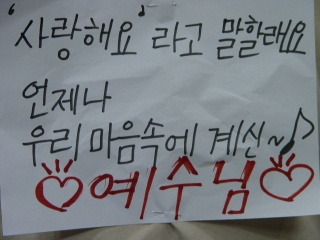 '사랑해요' 라고 말할래요
언제나
우리 마음속에 계신~♪
♡예수님♡